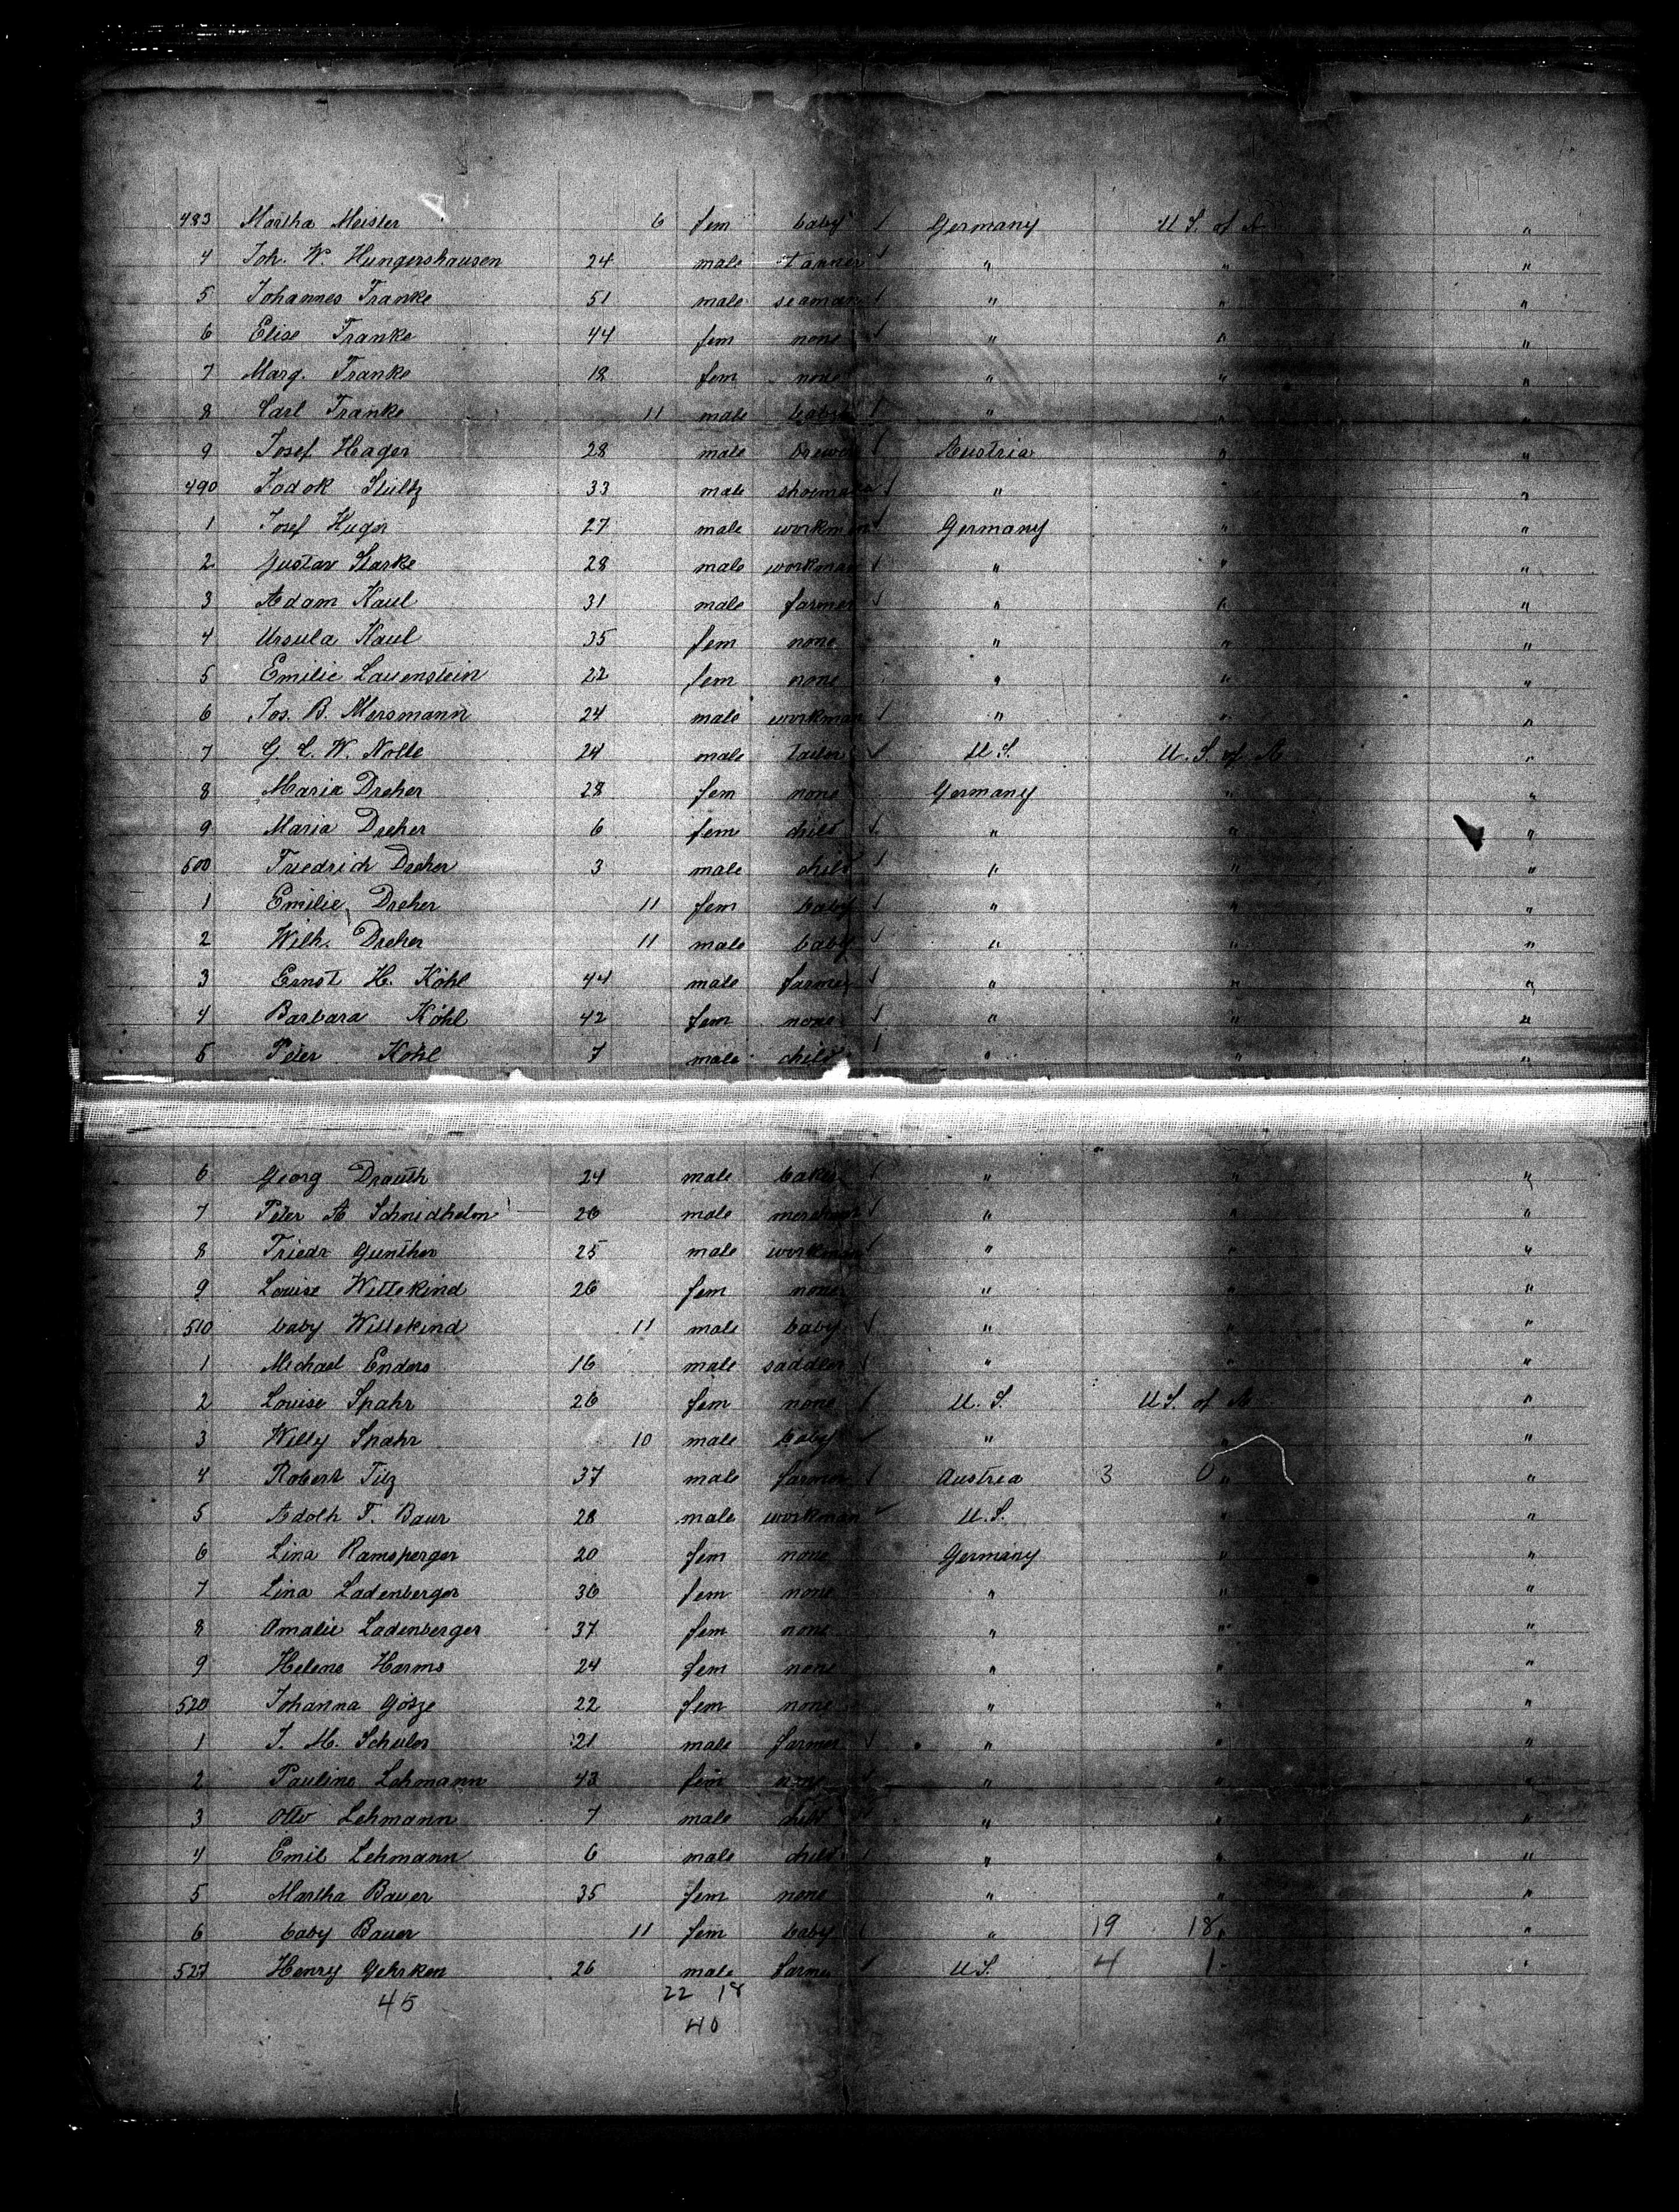 483 Martha Meister 6 fem baby √ Germany U S. of A "
4 Joh. W. Hungershausen 24 male tanner √ " " "
5 Johannes Franke 51 male seaman √ " " "
6 Elise Franke 44 fem none √ " " "
7 Marg. Franke 18 fem none " " "
8 Carl Franke 11 male baby √ " " "
9 Josef Hager 28 male brewer √ Austria " "
490 Jodok Stültz 33 male shoemaker √ " " "
1 Josef Huger 27 male workman √ Germany " "
2 Gustav Starke 28 male workman √ " " "
3 Adam Kaul 31 male farmer √ " " "
4 Ursula Kaul 35 fem none " " "
5 Emilie Lauenstein 22 fem none " " "
6 Jos. B. Mersmann 24 male workman √ " " "
7 G. C. W. Nolte 24 male tailor √ U S. U. S. of A "
8 Maria Dreher 28 fem none Germany " "
9 Maria Dreher 6 fem child √ " " "
500 Friedrich Dreher 3 male child √ " " "
1 Emilie Dreher 11 fem baby √ " " "
2 Wilh. Dreher 11 male baby √ " " "
3 Ernst H. Köhl 44 male farmer √ " " "
4 Barbara Köhl 42 fem none √ " " "
5 Peter Köhl 7 male child √ " " "
6 Georg Drauth 24 male baker √ " " "
7 Peter A Schmidhelm 26 male merchant √ " " "
8 Friedr Gunther 25 male workman √ " " "
9 Louise Wittekind 26 fem none " " "
510 baby Wittekind 11 male baby √ " " "
1 Michael Enders 16 male saddler √ " " "
2 Louise Spahr 26 fem none √ U. S. U S. of A "
3 Willy Spahr 10 male baby √ " " "
4 Robert Tilz 37 male farmer √ Austria 3 0 " "
5 Adolh F. Baur 28 male workman √ U. S. " "
6 Lina Ramsperger 20 fem none Germany " "
7 Lina Ladenberger 36 fem none " " "
8 Amalie Ladenberger 37 fem none " " "
9 Helene Harms 24 fem none " " "
520 Johanna Gösze 22 fem none " " "
1 J. M. Schuler 21 male farmer √ " " "
2 Pauline Lehmann 43 fem none √ " " "
3 Otto Lehmann 7 male child √ " " "
4 Emil Lehmann 6 male child √ " " "
5 Martha Bauer 35 fem none " " "
6 baby Bauer 11 fem baby √ " 19 18 " "
527 Henry Gehrken 26 male farmer √ U S. 4 1 " "
45 22 18
40